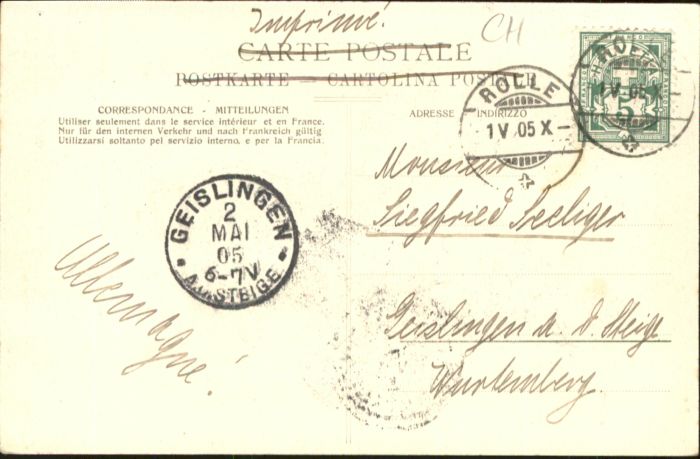 Imprimé.
CH
CARTE POSTALE
POSTKARTE - CARTOLINA POSTALE
CORRESPONDANCE - MITTEILUNGEN
Utiliser seulement dans le service intérieur et en France.
Nur für den internen Verkehr und nach Frankreich gültig
Utilizzarsi soltanto pel servizio interno, e per la Francia.
ADRESSE - INDIRIZZO
ROLLE
1 V .05 X -
ROLLE
1 V .05 X
5
Monsieur
Siegfried Seeliger
GEISLINGEN
2
MAI
05
6-7V
A.D.STEIGE
Allemagne!
Geislingen a. d. Steige
Wurtemberg.